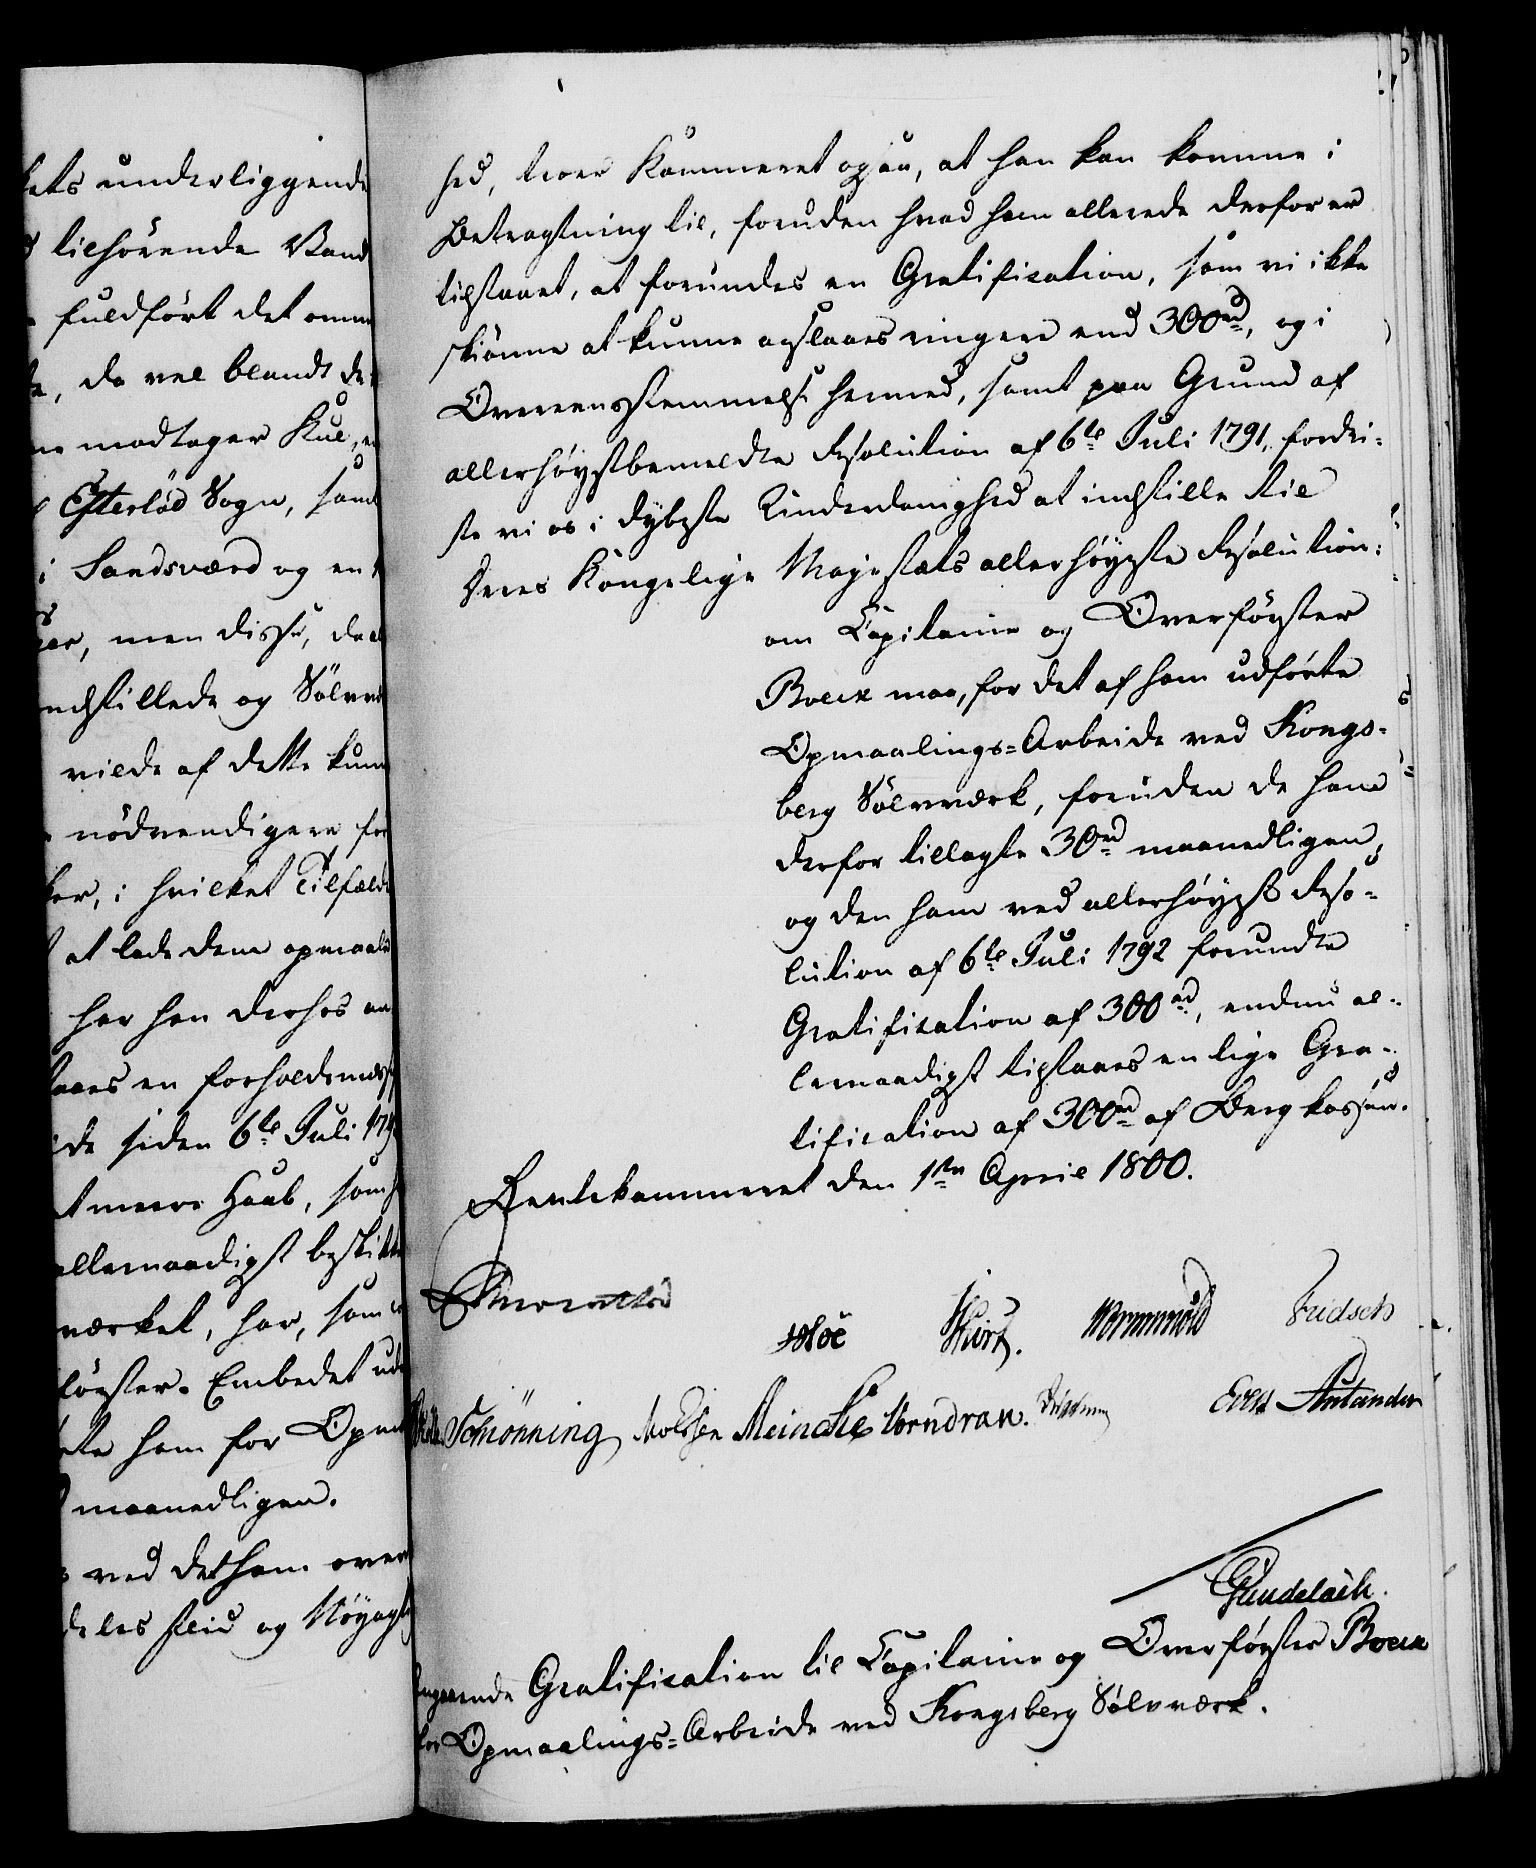 kets underliggende
tilhørende Vand
fuldført det om
da vel blandt de
modtager Kul, en
Efterløb Sogn, samt
i Sandsværd og en
men disse, da
indstillede og Sølvv
vilde af dette kun
nødvendigere for
ker, i hvilket Tilfælde
at lade dem opmaale
har han derhos an
laaes en forholdsmæss
ide siden 6te Juli 179
meere Haab, som
allernaadigst beskikk
værket, har, som
førster-Embedet ud
ham for Opm
maanedligen.
ved det ham over
deles Fliid og Nøyagtig
hed, troer Kammeret ogsaa, at han kan komme i
Betragtning til, foruden hvad ham allerede derfor er
tilstaaet, at forundes en Gratification, som vi ikke
skiønne at kunne anslaaes ringere end 300 rd, og i
Overeensstemmelse hermed, samt paa Grund af
allerhøystbemeldte Resolution af 6te Juli 1791, fordri-
ste vi os i dybeste Underdanighed at indstille til
Deres Kongelige Majestæts allerhøyeste Resolution:
om Capitaine og Overførster
Boeck maa, for det af ham udførte
Opmaalings-Arbeide ved Kongs-
berg Sølvværk, foruden de ham
derfor tillagte 30 rd maanedligen,
og den ham ved allerhøyest Reso-
lution af 6te Juli 1792 forundte
Gratification af 300 rd, endnu al-
lernaadigst tilstaaes en lige Gra-
tification af 300 rd af Bergkassen.
Rentekammeret den 1ste April 1800.
Reventlow
Hoë Hurtz. Wormskiold Fridsch
Schønning Molssen Meincke Vorndran. Evers Antander
Gundelach.
Angaaende Gratification til Capitaine og Overførster Boeck
for Opmaalings-Arbeide ved Kongsberg Sølvværk.